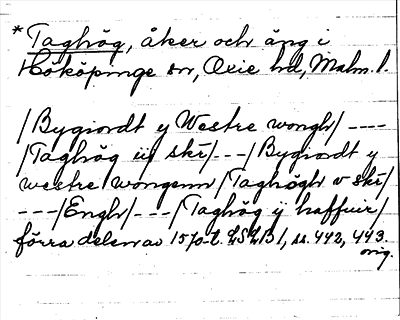 * Taghög, åker och äng i
Hököpinge sn, Oxie hd, Malm. l.
/Bygiordt y Westre wongh/ ----
/Taghög iij skr/---/Bygiordt y
westre wongenn/Taghögh v skr/
---/Engh/---/Taghög ij haffuir/
förra delen av 1570-t. LSLB1, ss. 442, 443.
orig.